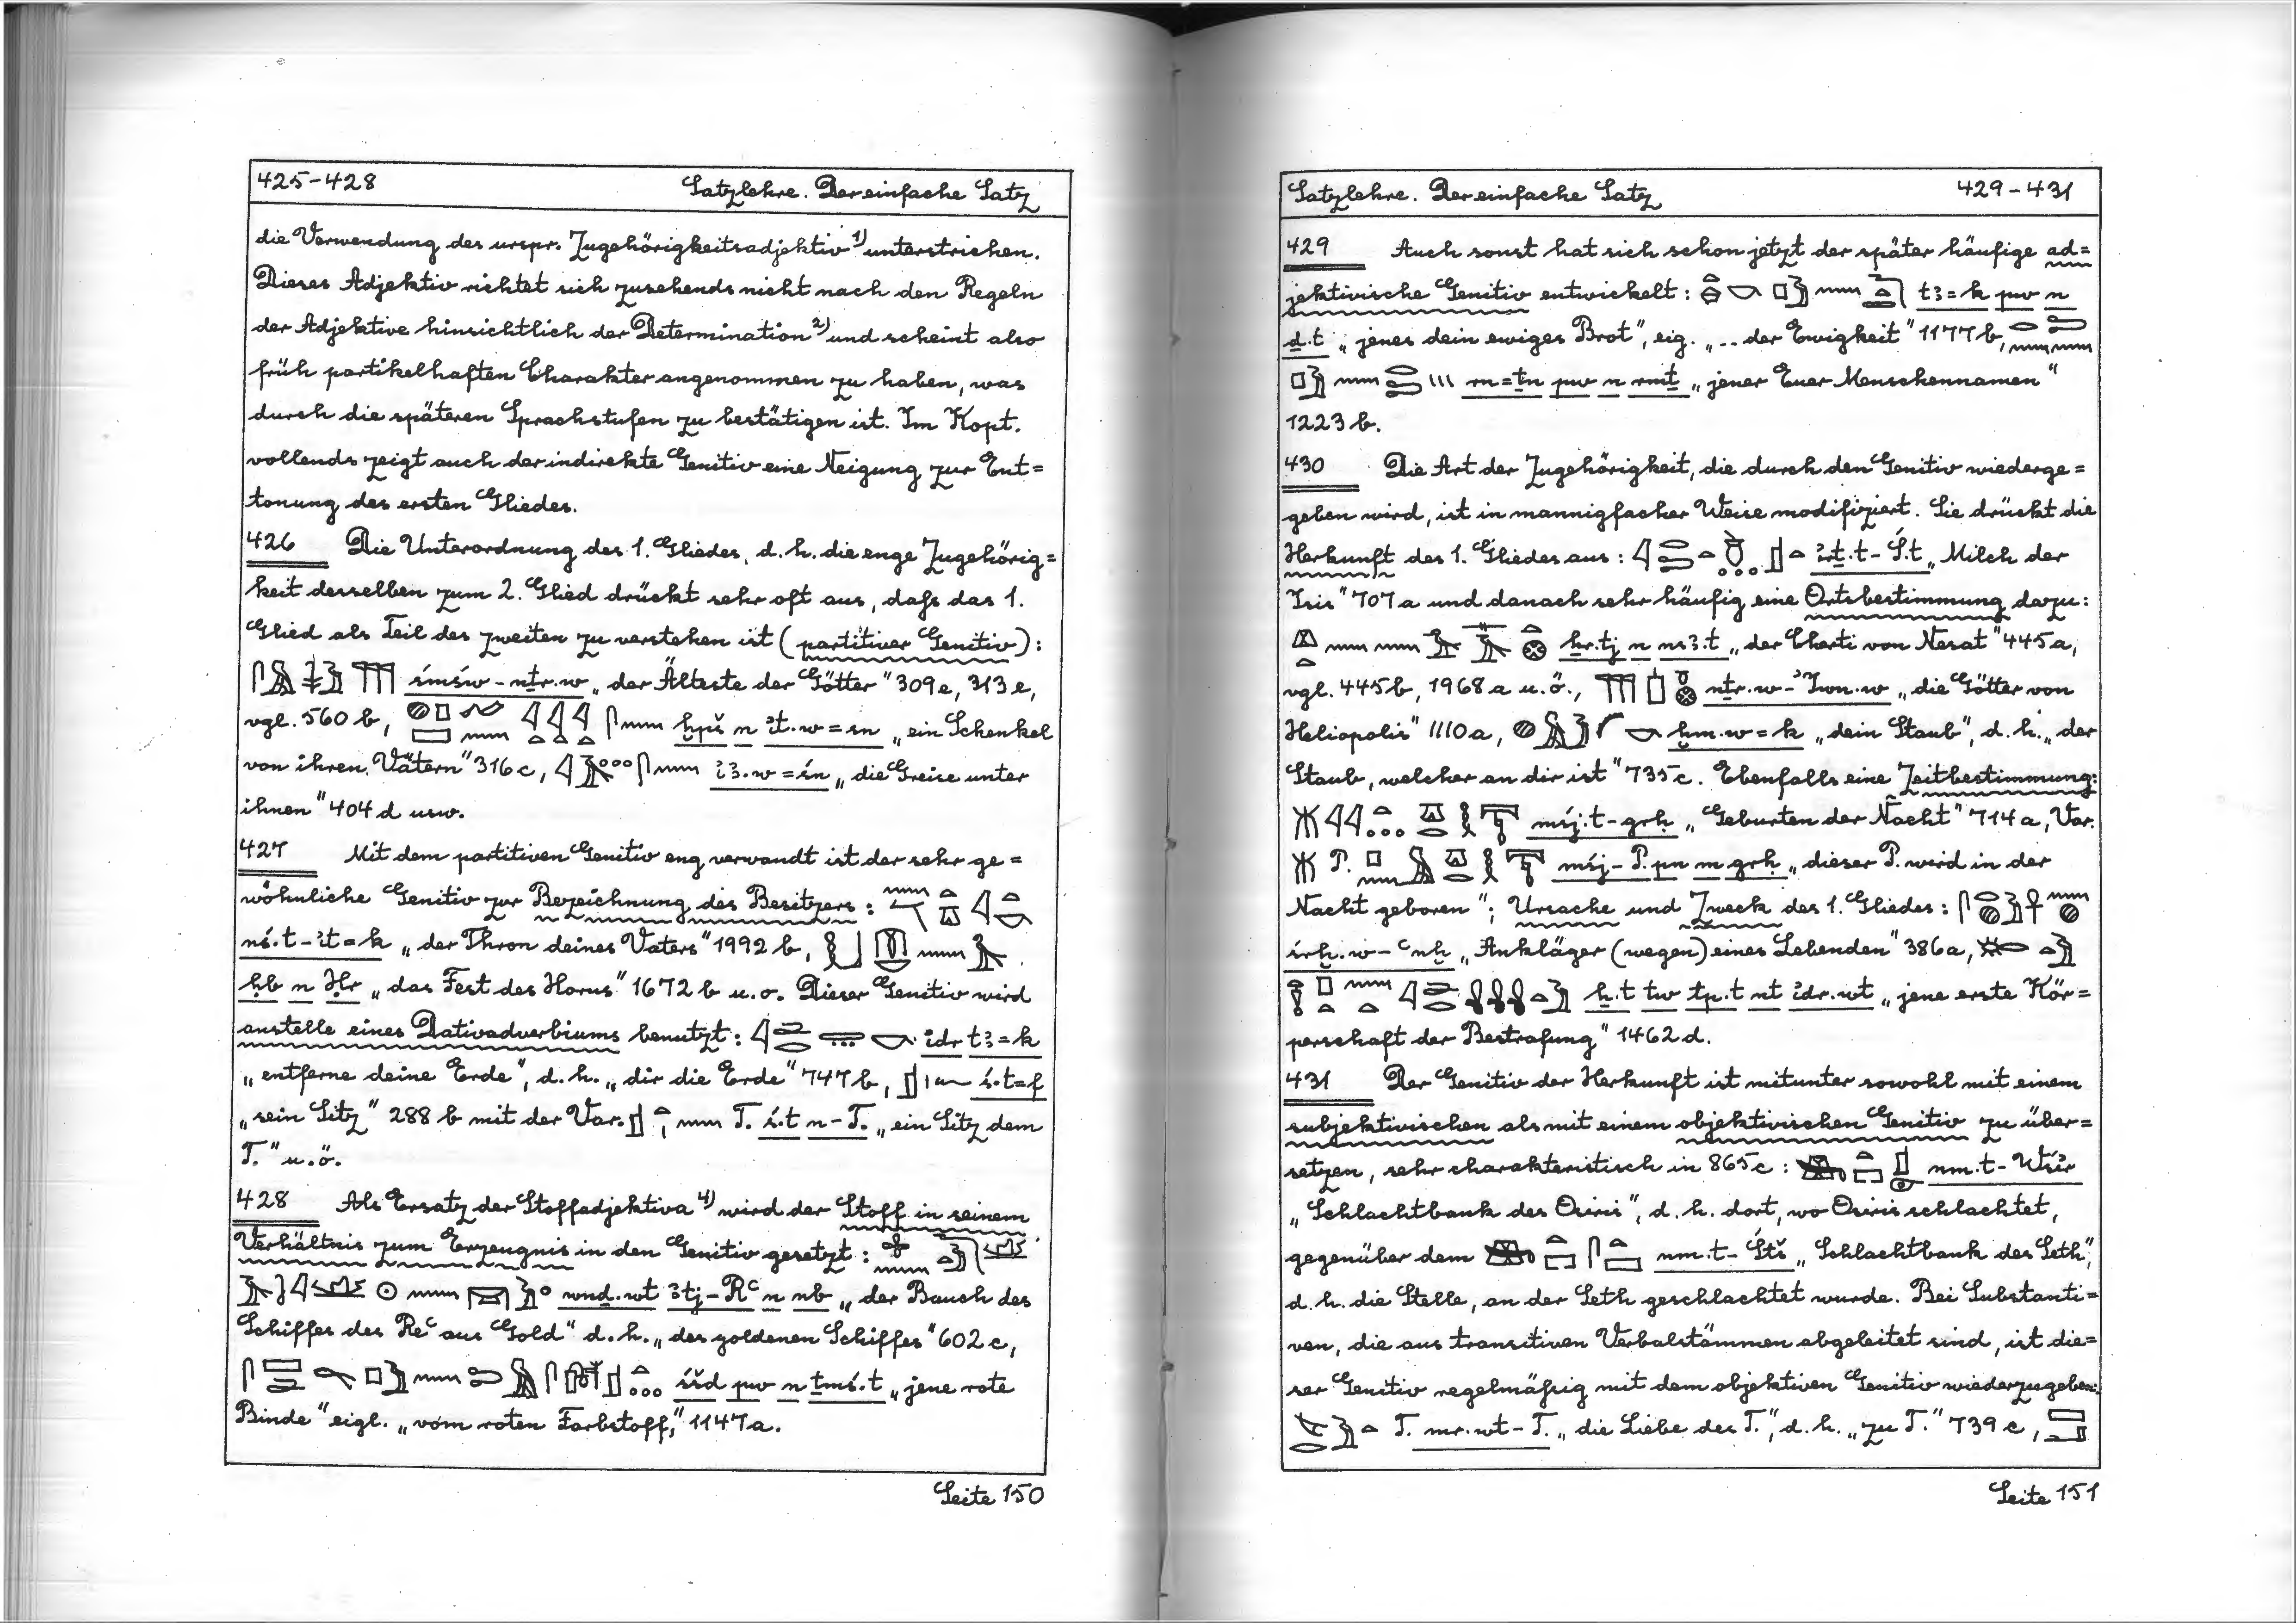 425-428 Satzlehre. Der einfache Satz
die Verwendung des urspr. Zugehörigkeitsadjektiv 1) unterstrichen.
Dieses Adjektiv richtet sich zusehends nicht nach den Regeln
der Adjektive hinsichtlich der Determination 2) und scheint also
früh partikelhaften Charakter angenommen zu haben, was
durch die späteren Sprachstufen zu bestätigen ist. Im Kopt.
vollends zeigt auch der indirekte Genitiv eine Neigung zur Ent=
tonung des ersten Gliedes.
426 Die Unterordnung des 1. Gliedes, d.h. die enge Zugehörig=
keit desselben zum 2. Glied drückt sehr oft aus, daß das 1.
Glied als Teil des zweiten zu verstehen ist (partitiver Genitiv):
śmśw-nṯr.w „der Älteste der Götter" 309e, 313e,
vgl. 560 b, ḫpš n ꞽt.w=sn „ein Schenkel
von ihren Vätern" 316c, ꞽꜣ.w=śn „die Greise unter
ihnen" 404 d usw.
427 Mit dem partitiven Genitiv eng verwandt ist der sehr ge=
wöhnliche Genitiv zur Bezeichnung des Besitzers:
nś.t-ꞽt=k „der Thron deines Vaters" 1992 b,
ḥb n Ḥr „das Fest des Horus" 1672 b u.o. Dieser Genitiv wird
anstelle eines Dativadverbiums benutzt: ꞽdr tꜣ=k
„entferne deine Erde", d.h. „dir die Erde" 747 b, ś.t=f
„sein Sitz" 288 b mit der Var. T. ś.t n-T. „ein Sitz dem
T." u.ö.
428 Als Ersatz der Stoffadjektiva 4) wird der Stoff in seinem
Verhältnis zum Erzeugnis in den Genitiv gesetzt:
wnḏ.wt ꜣtj-Rꜥ n nb „der Bauch des
Schiffes des Reꜥ aus Gold" d.h. „des goldenen Schiffes" 602 c,
śšd pw n ṯmś.t „jene rote
Binde" eigl. „vom roten Farbstoff," 1147a.
Seite 150
Satzlehre. Der einfache Satz 429-431
429 Auch sonst hat sich schon jetzt der später häufige ad=
jektivische Genitiv entwickelt: tꜣ=k pw n
ḏ.t „jenes dein ewiges Brot", eig. „.. der Ewigkeit" 1177 b,
rn=ṯn pw n rmṯ „jener Euer Menschennamen"
1223 b.
430 Die Art der Zugehörigkeit, die durch den Genitiv wiederge=
geben wird, ist in mannigfacher Weise modifiziert. Sie drückt die
Herkunft des 1. Gliedes aus: ꞽrṯ.t-Ś.t „Milch der
Isis" 707 a und danach sehr häufig eine Ortsbestimmung dazu:
ẖr.tj n nsꜣ.t „der Cherti von Nesat" 445a,
vgl. 445b, 1968 a u.ö., nṯr.w-ꞽwn.w „die Götter von
Heliopolis" 1110a, ḫm.w=k „dein Staub", d.h. „der
Staub, welcher an dir ist" 735c. Ebenfalls eine Zeitbestimmung:
mśj.t-grḥ „Geburten der Nacht" 714 a, Var.
P. mśj-P. pn m grḥ „dieser P. wird in der
Nacht geboren"; Ursache und Zweck des 1. Gliedes:
śrḫ.w-ꜥnḫ „Ankläger (wegen) eines Lebenden" 386a,
ẖ.t tw tp.t nt ꞽdr.wt „jene erste Kör=
perschaft der Bestrafung" 1462 d.
431 Der Genitiv der Herkunft ist mitunter sowohl mit einem
subjektivischen als mit einem objektivischen Genitiv zu über=
setzen, sehr charakteristisch in 865c: nm.t-Wśꞽr
„Schlachtbank des Osiris", d.h. dort, wo Osiris schlachtet,
gegenüber dem nm.t-Śtš „Schlachtbank des Seth",
d.h. die Stelle, an der Seth geschlachtet wurde. Bei Substanti=
ven, die aus transitiven Verbalstämmen abgeleitet sind, ist die=
ser Genitiv regelmäßig mit dem objektiven Genitiv wiederzugeben:
T. mr.wt-T. „die Liebe des T.", d.h. „zu T." 739 c,
Seite 151